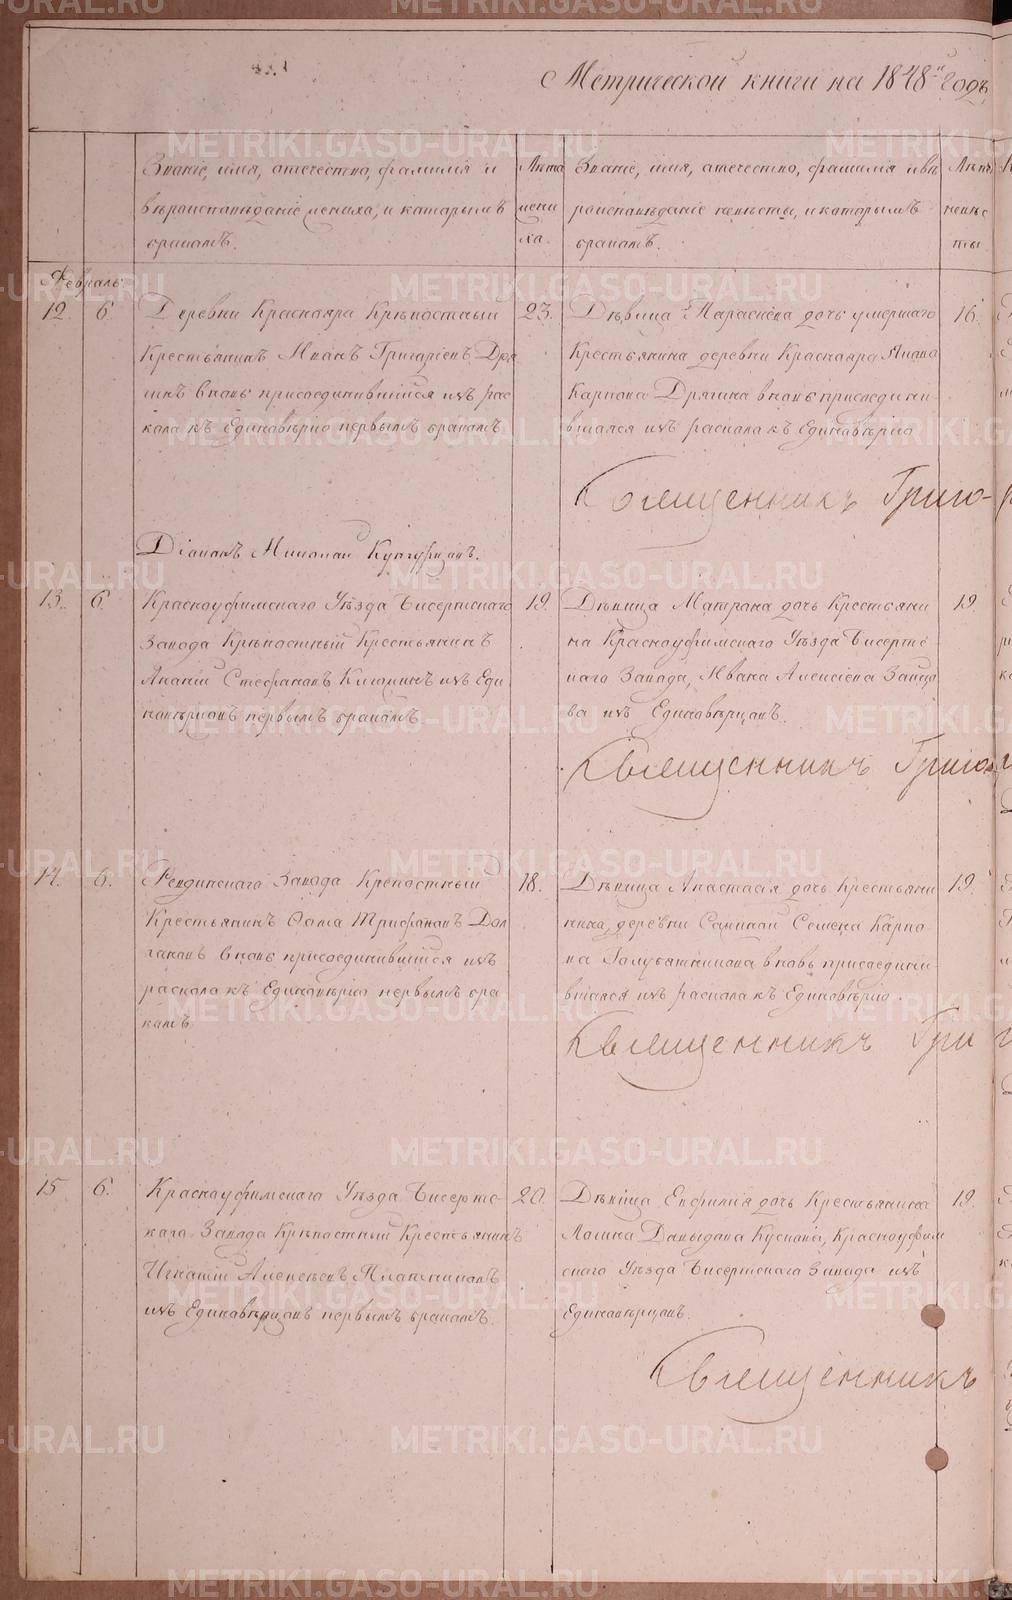 Метрической книги на 1848й годъ
Званіе, имя, отечество, фамилія и
вѣроисповѣданіе жениха, и каторымъ
бракомъ.
Лѣта
жени
ха.
Званіе, имя, отечество, фамилія и вѣ
роисповѣданіе невѣсты, и каторымъ
бракомъ.
Лѣта
невѣс
ты
Февраль
12. 6.
Деревни Краснояра Крѣпостный
Крестьянинъ Иванъ Григоріевъ Дря
гинъ вновь присоединившійся изъ рас
кола къ Единовѣрію первымъ бракомъ
23.
Дѣвица Параскева дочь умершаго
Крестьянина деревни Краснояра
Карпова Дрягина вновь
вшаяся изъ раскола къ Единовѣрію
16.
Священникъ Григо-
Діаконъ Николай
13. 6.
Красноуфимскаго Уѣзда Бисертскаго
Завода Крѣпостный Крестьянинъ
Ананій Стефановъ изъ Еди
новѣрцовъ первымъ бракомъ
19.
Дѣвица Матрона дочь Крестьяни
на Красноуфимскаго Уѣзда Бисертс
каго Завода, Ивана Алексіева
ва изъ Единовѣрцовъ.
19.
Священникъ Григо
14. 6.
Ревдинскаго Завода Крепостный
Крестьянинъ Фома Трифоновъ Дол
гановъ вновь присоединившійся изъ
раскола къ Единовѣрію первымъ бра
комъ.
18.
Дѣвица Анастасія дочь Крестьяни
нина деревни Семена Карпо
ва вновь присоедини
вшаяся изъ раскола къ Единовѣрію.
19.
Священникъ Гри
15 6.
Красноуфимскаго Уѣзда Бисертс
каго Завода Крѣпостный Крестьянинъ
Игнатій Алексѣевъ
изъ Единовѣрцовъ первымъ бракомъ.
20.
Дѣвица Евфимія дочь Крестьянина
Давыдова Красноуфим
скаго Уѣзда Бисертскаго Завода изъ
Единовѣрцовъ.
19.
Священникъ
METRIKI.GASO-URAL.RU